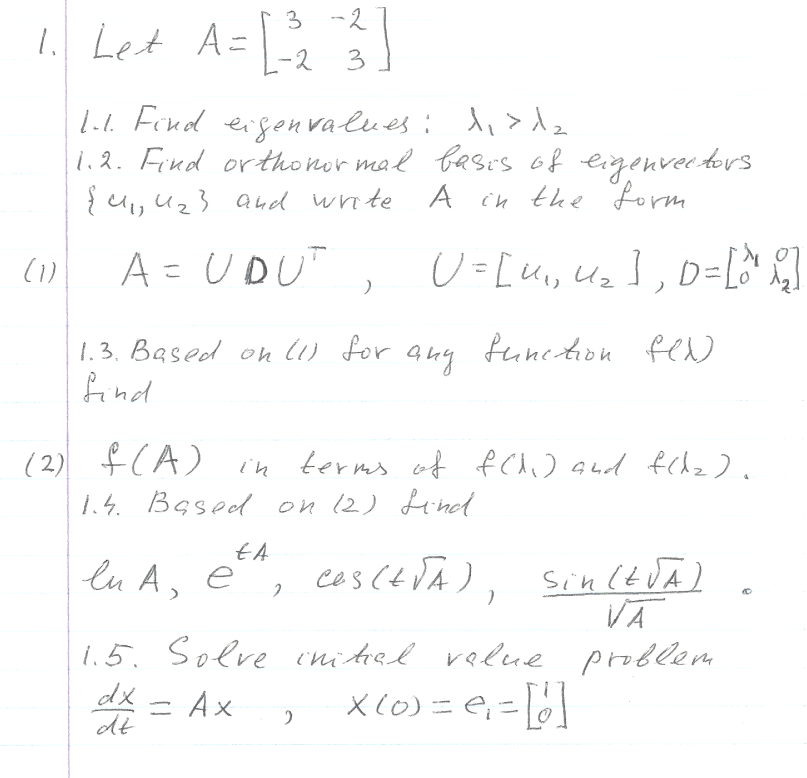 1. Let A = [3 -2
-2 3]
1.1. Find eigenvalues: λ₁ > λ₂
1.2. Find orthonormal basis of eigenvectors
{u₁, u₂} and write A in the form
(1) A = U D Uᵀ, U = [u₁, u₂], D = [λ₁ 0
0 λ₂]
1.3. Based on (1) for any function f(λ)
find
(2) f(A) in terms of f(λ₁) and f(λ₂).
1.4. Based on (2) find
ln A, e^{tA}, cos(t√A), sin(t√A)/√A.
1.5. Solve initial value problem
dx/dt = Ax, x(0) = e₁ = [1
0]